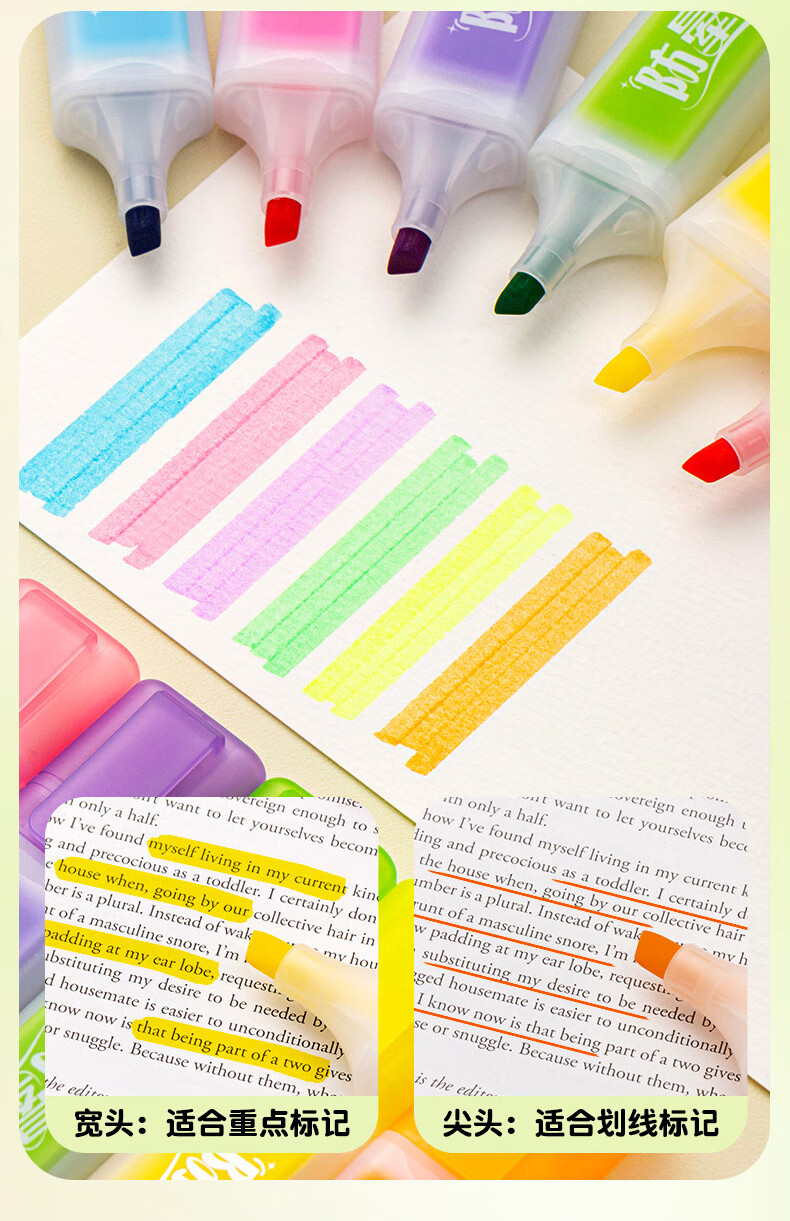 防
防墨
n't want to let yourselves becom
th only a half.
w I've found myself living in my current kin
g and precocious as a toddler. I certainly don
e house when, going by our collective hair in
ber is a plural. Instead of wak
my hou
nt of a masculine snore, I'm
padding at my ear lobe, request
ubstituting my desire to be needed by
d housemate is easier to unconditionally
now now is that being part of a two gives
or snuggle. Because without them, whe
the editor
宽头：适合重点标记
vereign enough to
n't want to let yourselves becc
ith only a half.
how I've found myself living in my current k
ding and precocious as a toddler. I certainly d
the house when, going by our collective hair
umber is a plural. Instead of wak
my h
runt of a masculine snore, I'm
w padding at my ear lobe, requesti
substituting my desire to be needed by
ged housemate is easier to unconditionally
I know now is that being part of a two gives
se or snuggle. Because without them, whe
is the editor
尖头：适合划线标记